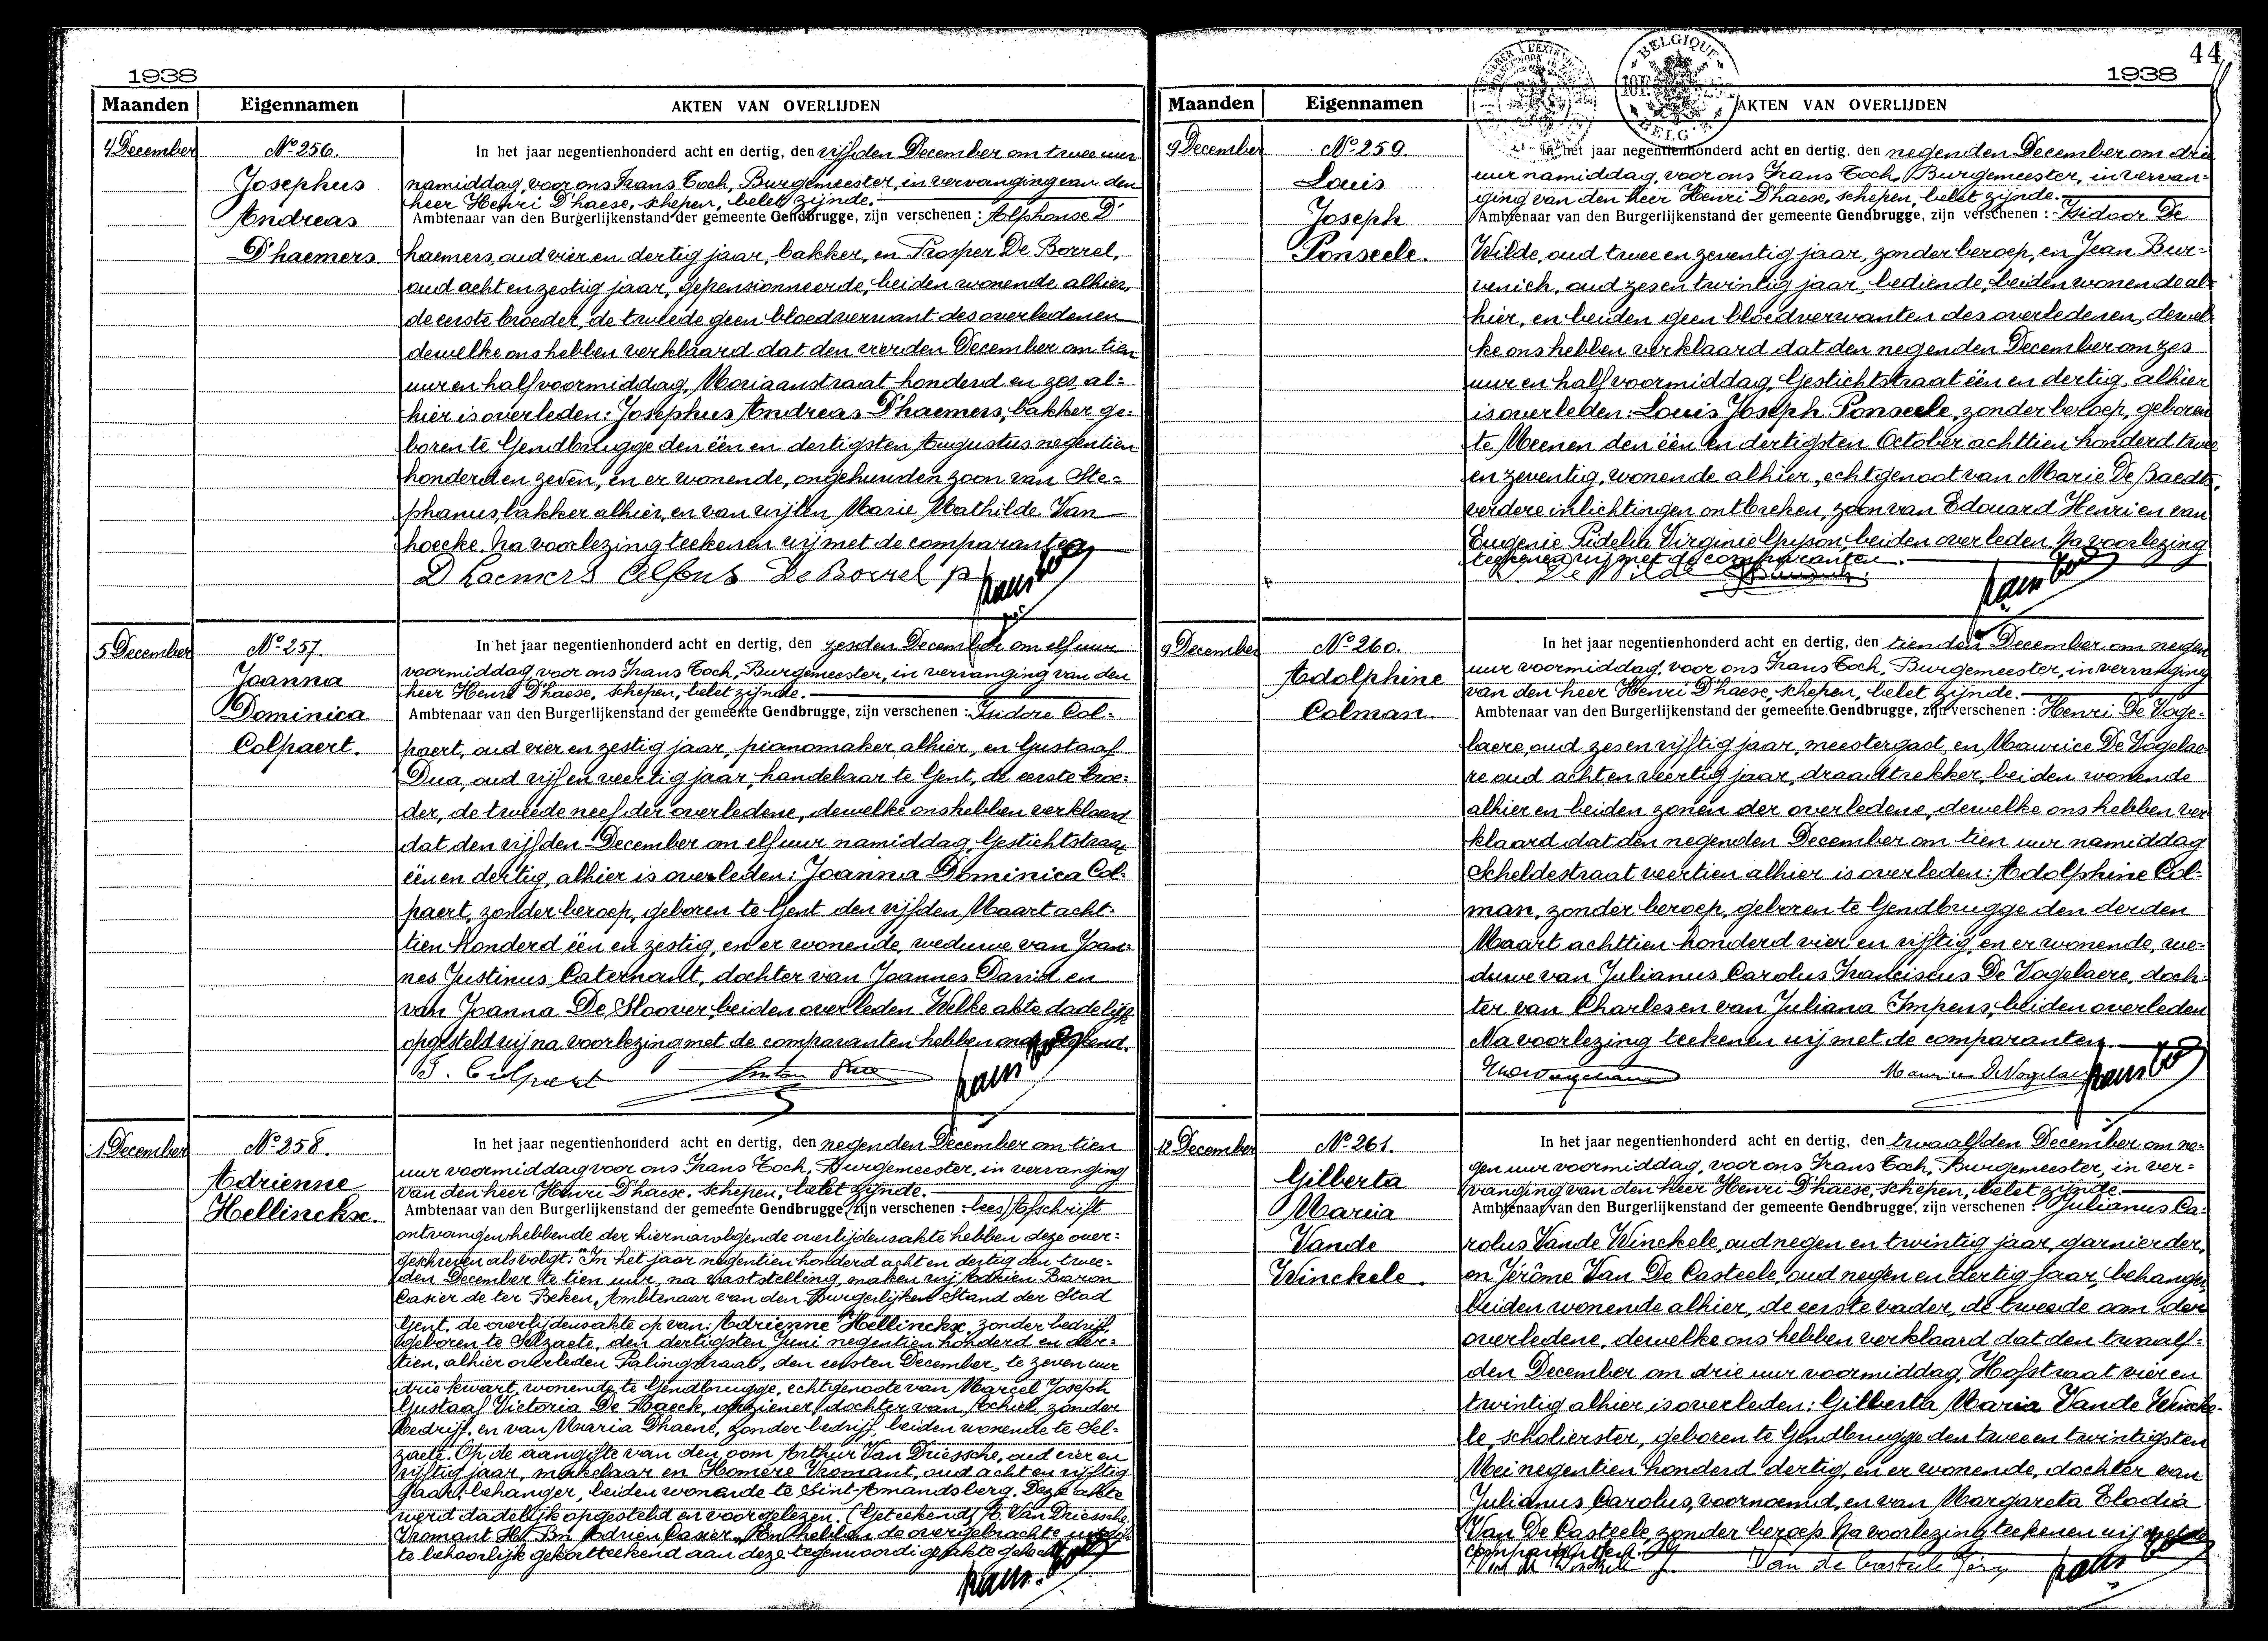 1938
Maanden Eigennamen AKTEN VAN OVERLIJDEN
4 December
No 256.
Josephus
Andreas
D'haemers.
In het jaar negentienhonderd acht en dertig, den vijfden December om twee uur
namiddag, voor ons Frans Toch, Burgemeester, in vervanging van den
heer Henri D'haese, schepen, belet zijnde.
Ambtenaar van den Burgerlijkenstand der gemeente Gendbrugge, zijn verschenen : Alphonse D'
haemers, oud vier en dertig jaar, bakker, en Prosper De Borrel,
oud acht en zestig jaar, gepensionneerde, beiden wonende alhier,
de eerste broeder, de tweede geen bloedverwant des overledenen
dewelke ons hebben verklaard dat den vierden December om tien
uur en half voormiddag, Mariaanstraat honderd en zes al-
hier is overleden: Josephus Andreas D'haemers, bakker, ge-
boren te Gendbrugge den één en dertigsten Augustus negentien
honderd en zeven, en er wonende, ongehuwden zoon van Ste-
phanus, bakker alhier, en van wijlen Marie Mathilde Van
hoecke. Na voorlezing teekenen wij met de comparanten
Dhaemers Alfons De Borrel p
5 December
No 257.
Joanna
Dominica
Colpaert.
In het jaar negentienhonderd acht en dertig, den zesden December om elf uur
voormiddag, voor ons Frans Toch, Burgemeester, in vervanging van den
heer Henri D'haese, schepen, belet zijnde.
Ambtenaar van den Burgerlijkenstand der gemeente Gendbrugge, zijn verschenen : Isidore Col-
paert, oud vier en zestig jaar, pianomaker alhier, en Gustaaf
Dua, oud vijf en veertig jaar, handelaar te Gent, de eerste broe-
der, de tweede neef der overledene, dewelke ons hebben verklaard
dat den vijfden December om elf uur namiddag, Gestichtstraat
één en dertig, alhier is overleden: Joanna Dominica Col-
paert, zonder beroep, geboren te Gent den vijfden Maart acht-
tien honderd één en zestig, en er wonende, weduwe van Joan-
nes Justinus Caternout, dochter van Joannes David en
van Joanna De Sloover, beiden overleden. Welke akte dadelijk
opgesteld wij na voorlezing met de comparanten hebben onderteekend.
Colpaert
1 December
No 258.
Adrienne
Hellinckx.
In het jaar negentienhonderd acht en dertig, den negenden December om tien
uur voormiddag voor ons Frans Toch, Burgemeester, in vervanging
van den heer Henri D'haese, schepen, belet zijnde.
Ambtenaar van den Burgerlijkenstand der gemeente Gendbrugge, zijn verschenen : lees Afschrift
ontvangen hebbende der hiernavolgende overlijdensakte hebben deze over-
geschreven als volgt: "In het jaar negentien honderd acht en dertig den twee-
den December te tien uur, na vaststelling, maken wij Adrien Baron
Casier de ter Beken, Ambtenaar van den Burgerlijken Stand der Stad
Gent, de overlijdensakte op van: Adrienne Hellinckx, zonder bedrijf,
geboren te Selzaete, den dertigsten Juni negentien honderd en der-
tien, alhier overleden Palingstraat, den eersten December, te zeven uur
drie kwart, wonende te Gendbrugge, echtgenoote van Marcel Joseph
Gustaaf Victoria De Baeck, opziener, dochter van Achiel, zonder
bedrijf, en van Maria Dhaene, zonder bedrijf, beiden wonende te Sel-
zaete. Op de aangifte van den oom Arthur Van Driessche, oud vier en
vijftig jaar, makelaar en Homère Vromant, oud acht en vijftig
jaar, behanger, beiden wonende te Sint-Amandsberg. Deze akte
werd dadelijk opgesteld en voorgelezen. (Geteekend) A. Van Driessche,
Vromant H. Bn Adrien Casier. En hebben de overgebrachte
te behoorlijk gekortteekend aan deze tegenwoordige akte gehecht
44
1938
Maanden Eigennamen AKTEN VAN OVERLIJDEN
BELGIQUE
9 December
No 259.
Louis
Joseph
Ponseele.
In het jaar negentienhonderd acht en dertig, den negenden December om drie
uur namiddag, voor ons Frans Toch, Burgemeester, in vervan-
ging van den heer Henri D'haese, schepen, belet zijnde.
Ambtenaar van den Burgerlijkenstand der gemeente Gendbrugge, zijn verschenen : Isidoor De
Wilde, oud twee en zeventig jaar, zonder beroep, en Jean Bur-
venich, oud zes en twintig jaar, bediende, beiden wonende al-
hier, en beiden geen bloedverwanten des overledenen, dewel-
ke ons hebben verklaard dat den negenden December om zes
uur en half voormiddag, Gestichtstraat één en dertig, alhier
is overleden: Louis Joseph Ponseele, zonder beroep, geboren
te Meenen den één en dertigsten October achttien honderd twee
en zeventig, wonende alhier, echtgenoot van Marie De Baedts,
verdere inlichtingen ontbreken, zoon van Edouard Henri en van
Eugenie Fidelia Virginie beiden overleden. Na voorlezing
teekenen wij met de comparanten.
De Wilde
9 December
No 260.
Adolphine
Colman.
In het jaar negentienhonderd acht en dertig, den tienden December om negen
uur voormiddag, voor ons Frans Toch, Burgemeester, in vervanging
van den heer Henri D'haese, schepen, belet zijnde.
Ambtenaar van den Burgerlijkenstand der gemeente Gendbrugge, zijn verschenen : Henri De Voge-
laere, oud zes en vijftig jaar, meestergast, en Maurice De Vogelae-
re oud acht en veertig jaar, draadtrekker, beiden wonende
alhier en beiden zonen der overledene, dewelke ons hebben ver-
klaard dat den negenden December om tien uur namiddag
Scheldestraat veertien alhier is overleden: Adolphine Col-
man, zonder beroep, geboren te Gendbrugge den derden
Maart achttien honderd vier en vijftig, en er wonende, we-
duwe van Julianus Carolus Franciscus De Vogelaere, doch-
ter van Charles en van Juliana Impens, beiden overleden
Na voorlezing teekenen wij met de comparanten.
Maurice De Vogelaere
12 December
No 261.
Gilberta
Maria
Vande
Winckele.
In het jaar negentienhonderd acht en dertig, den twaalfden December om ne-
gen uur voormiddag, voor ons Frans Toch, Burgemeester, in ver-
vanging van den heer Henri D'haese, schepen, belet zijnde.
Ambtenaar van den Burgerlijkenstand der gemeente Gendbrugge, zijn verschenen : Julianus Ca-
rolus Vande Winckele, oud negen en twintig jaar, garnierder,
en Jérôme Van De Casteele, oud negen en dertig jaar, behanger,
beiden wonende alhier, de eerste vader, de tweede oom der
overledene, dewelke ons hebben verklaard dat den twaalf-
den December om drie uur voormiddag, Hofstraat vier en
twintig alhier is overleden: Gilberta Maria Vande Wincke-
le, scholierster, geboren te Gendbrugge den twee en twintigsten
Mei negentien honderd dertig, en er wonende, dochter van
Julianus Carolus, voornoemd, en van Margareta Eladia
Van De Casteele, zonder beroep. Na voorlezing teekenen wij met de
comparanten.
Van de Winckele J. Van de Casteele